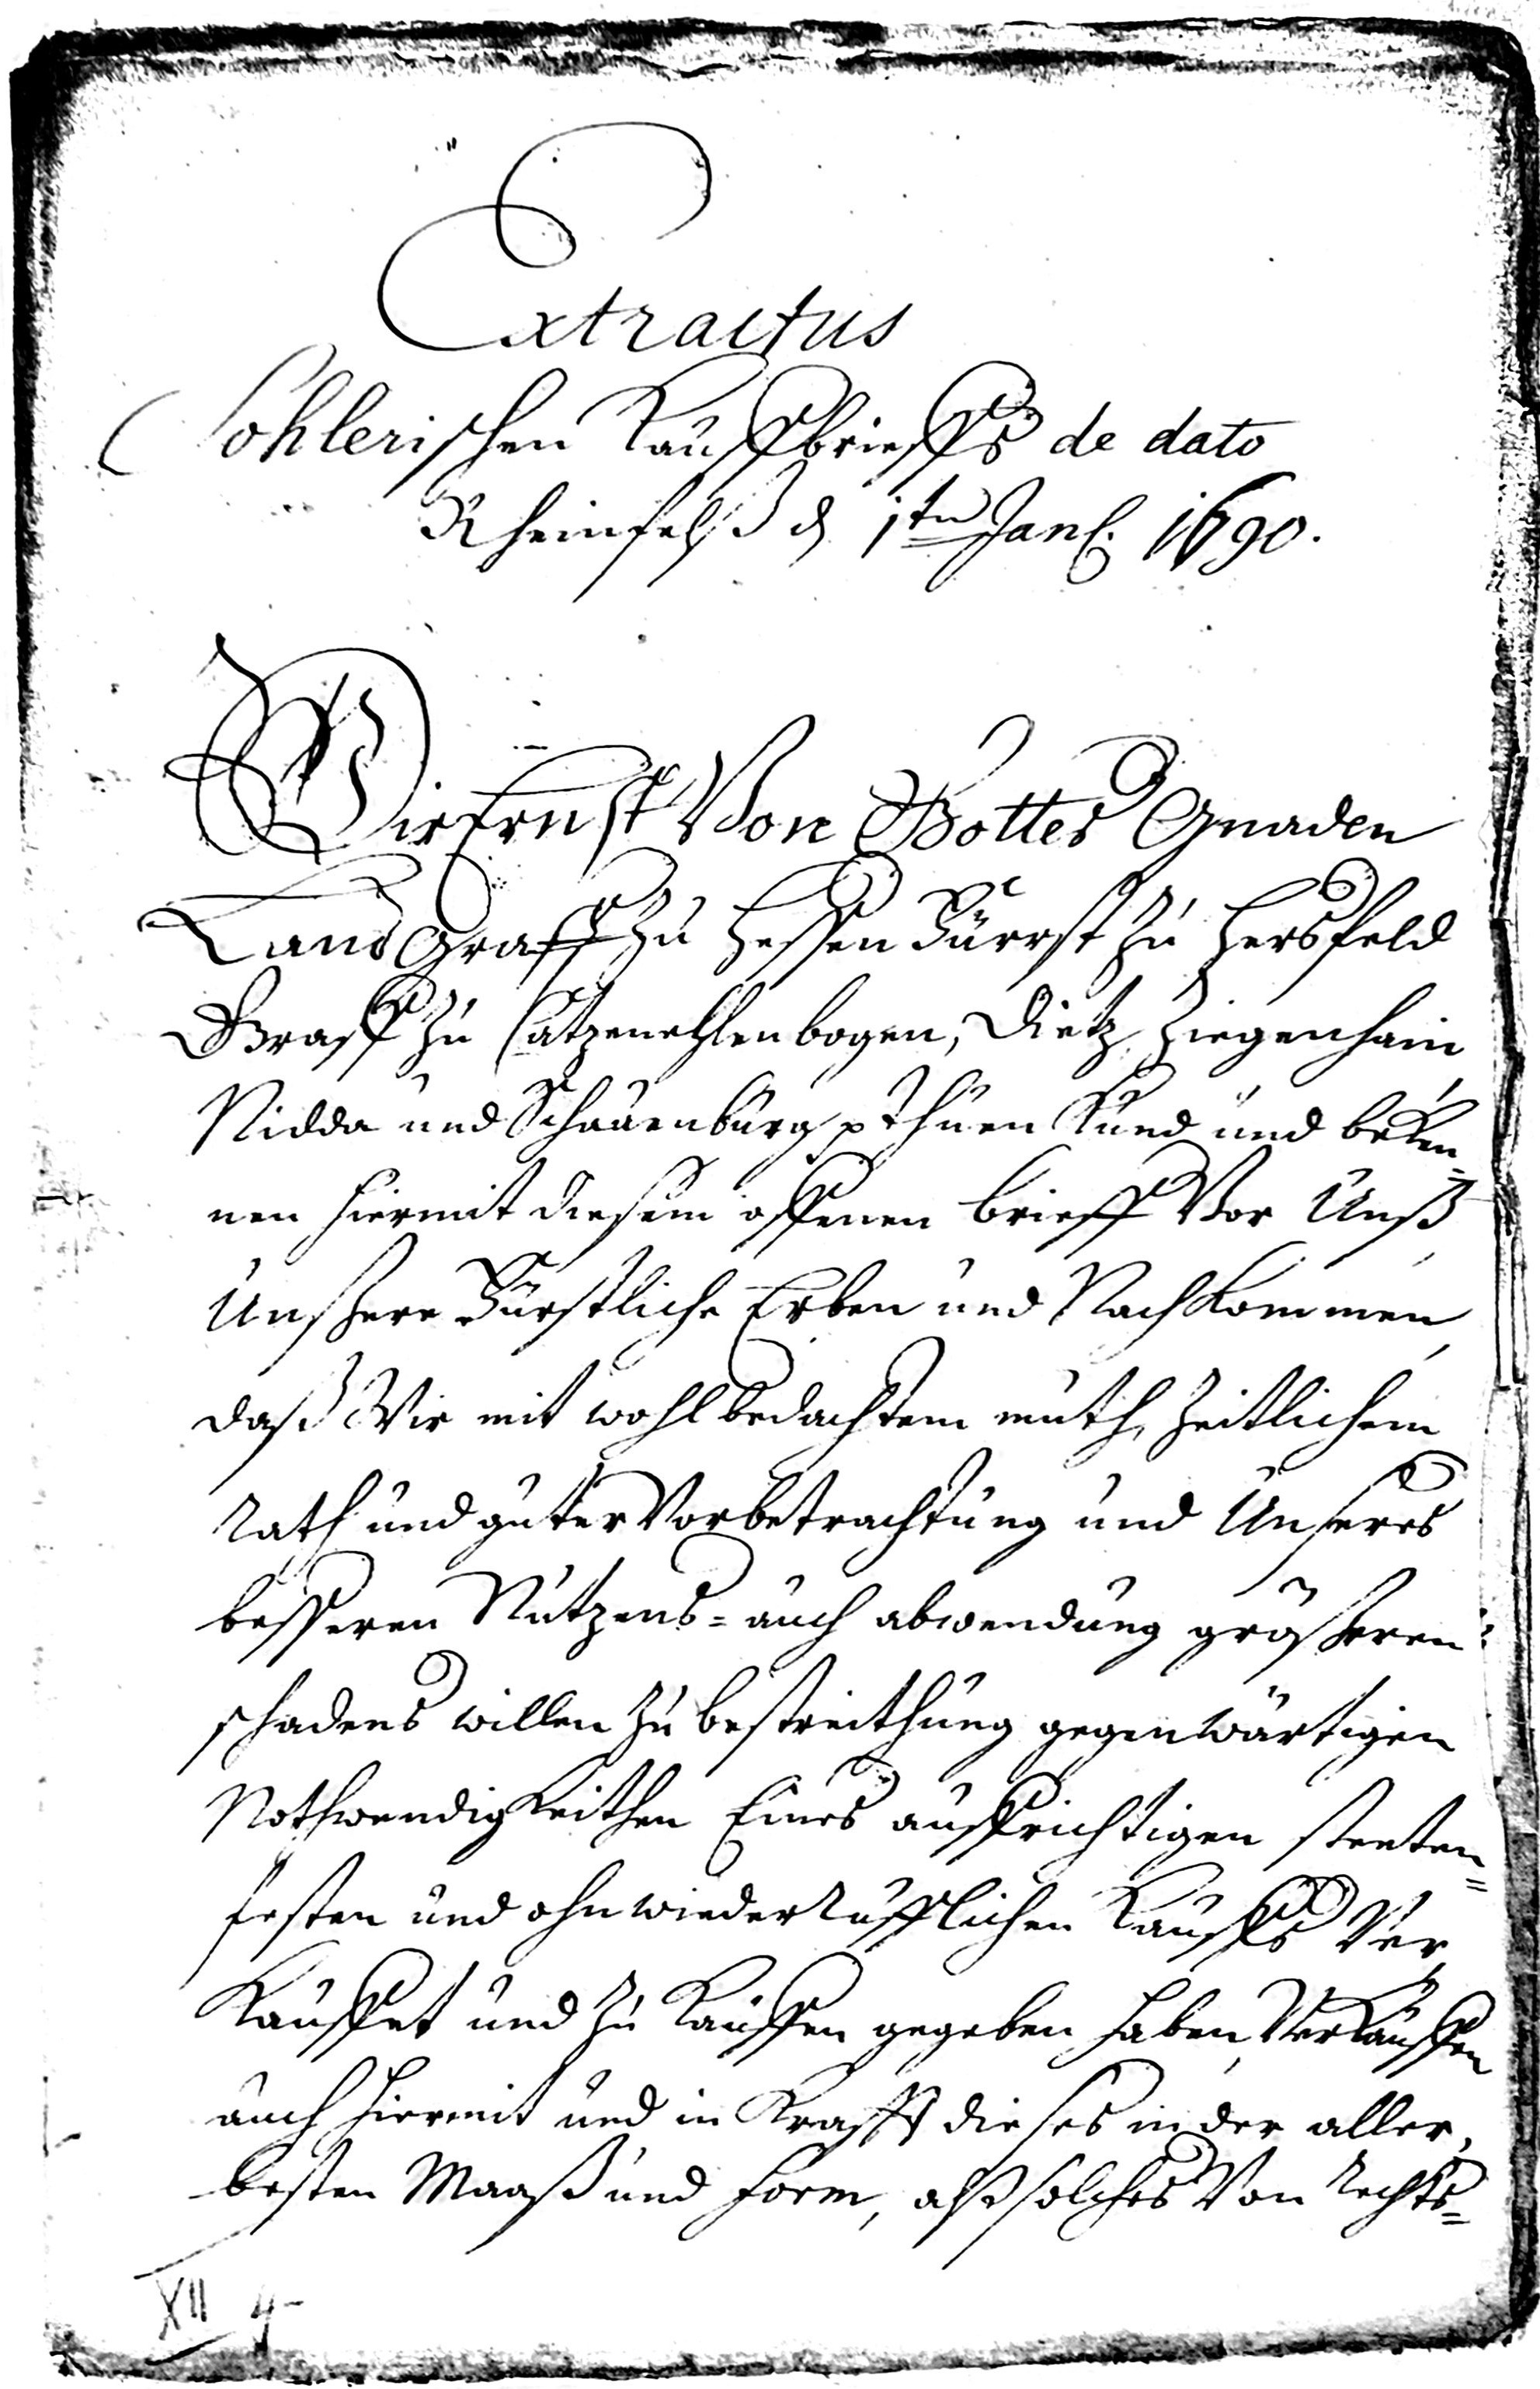 Extractus
Cohlerischen Kauffbrieffs de dato
Rheinfelß d 1ten Jan. 1690.
Wir Ernst Von Gottes Gnaden
Landgraff zu Hessen Fürst zu Hersfeld
Graff zu Catzenelenbogen, Dietz, Ziegenhain
Nidda und Schauenburg p thuen Kund und beken=
nen hiermit diesem offenen brieff Vor Unß
Unsere Fürstliche Erben und Nachkommen,
daß Wir mit wohlbedachtem muth, zeitlichem
rath und guter Vorbetrachtung und Unseres
besseren Nutzens= auch abwendung größeren
schadens willen zu bestreithung gegenwärtigen
Nothwendigkeithen Eines auffrichtigen steeten=
festen und ohnwiederrufflichen Kauffs Ver
Kauffet und zu Kauffen gegeben haben, Verkauffen
auch hiermit und in Krafft dieses in der aller,
besten Maaß und Form, alß solches Von rechts=
XII 4